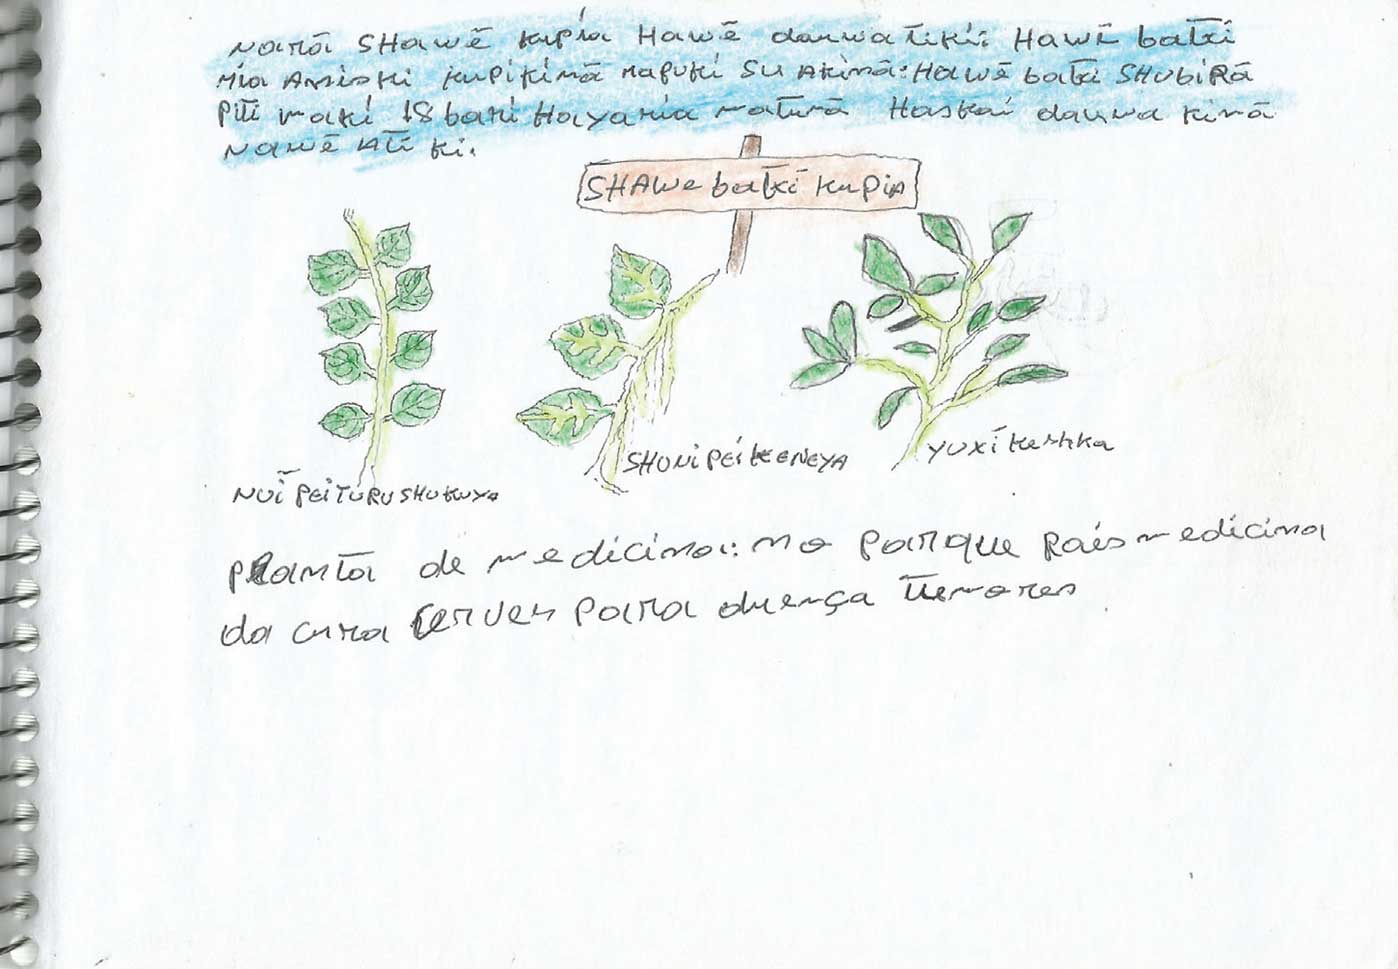 Narã SHawẽ kupia Hawẽ dauwa tiki: Hawẽ batxi
mia Amiski kupikinã mapuki su akinã: Hawẽ batxi SHubirã
piti maki 18 bari Hayaria naturã Haskaí dauwa kinã
nawẽ atĩ ki.
SHAWe batxí kupiA
NUĨ PEiTURUSHUKUYA
SHUNiPEiKEENEYA
YUXí Keshka
PLanta de medicina: no parque pais medicina
da cura server para duença tumores